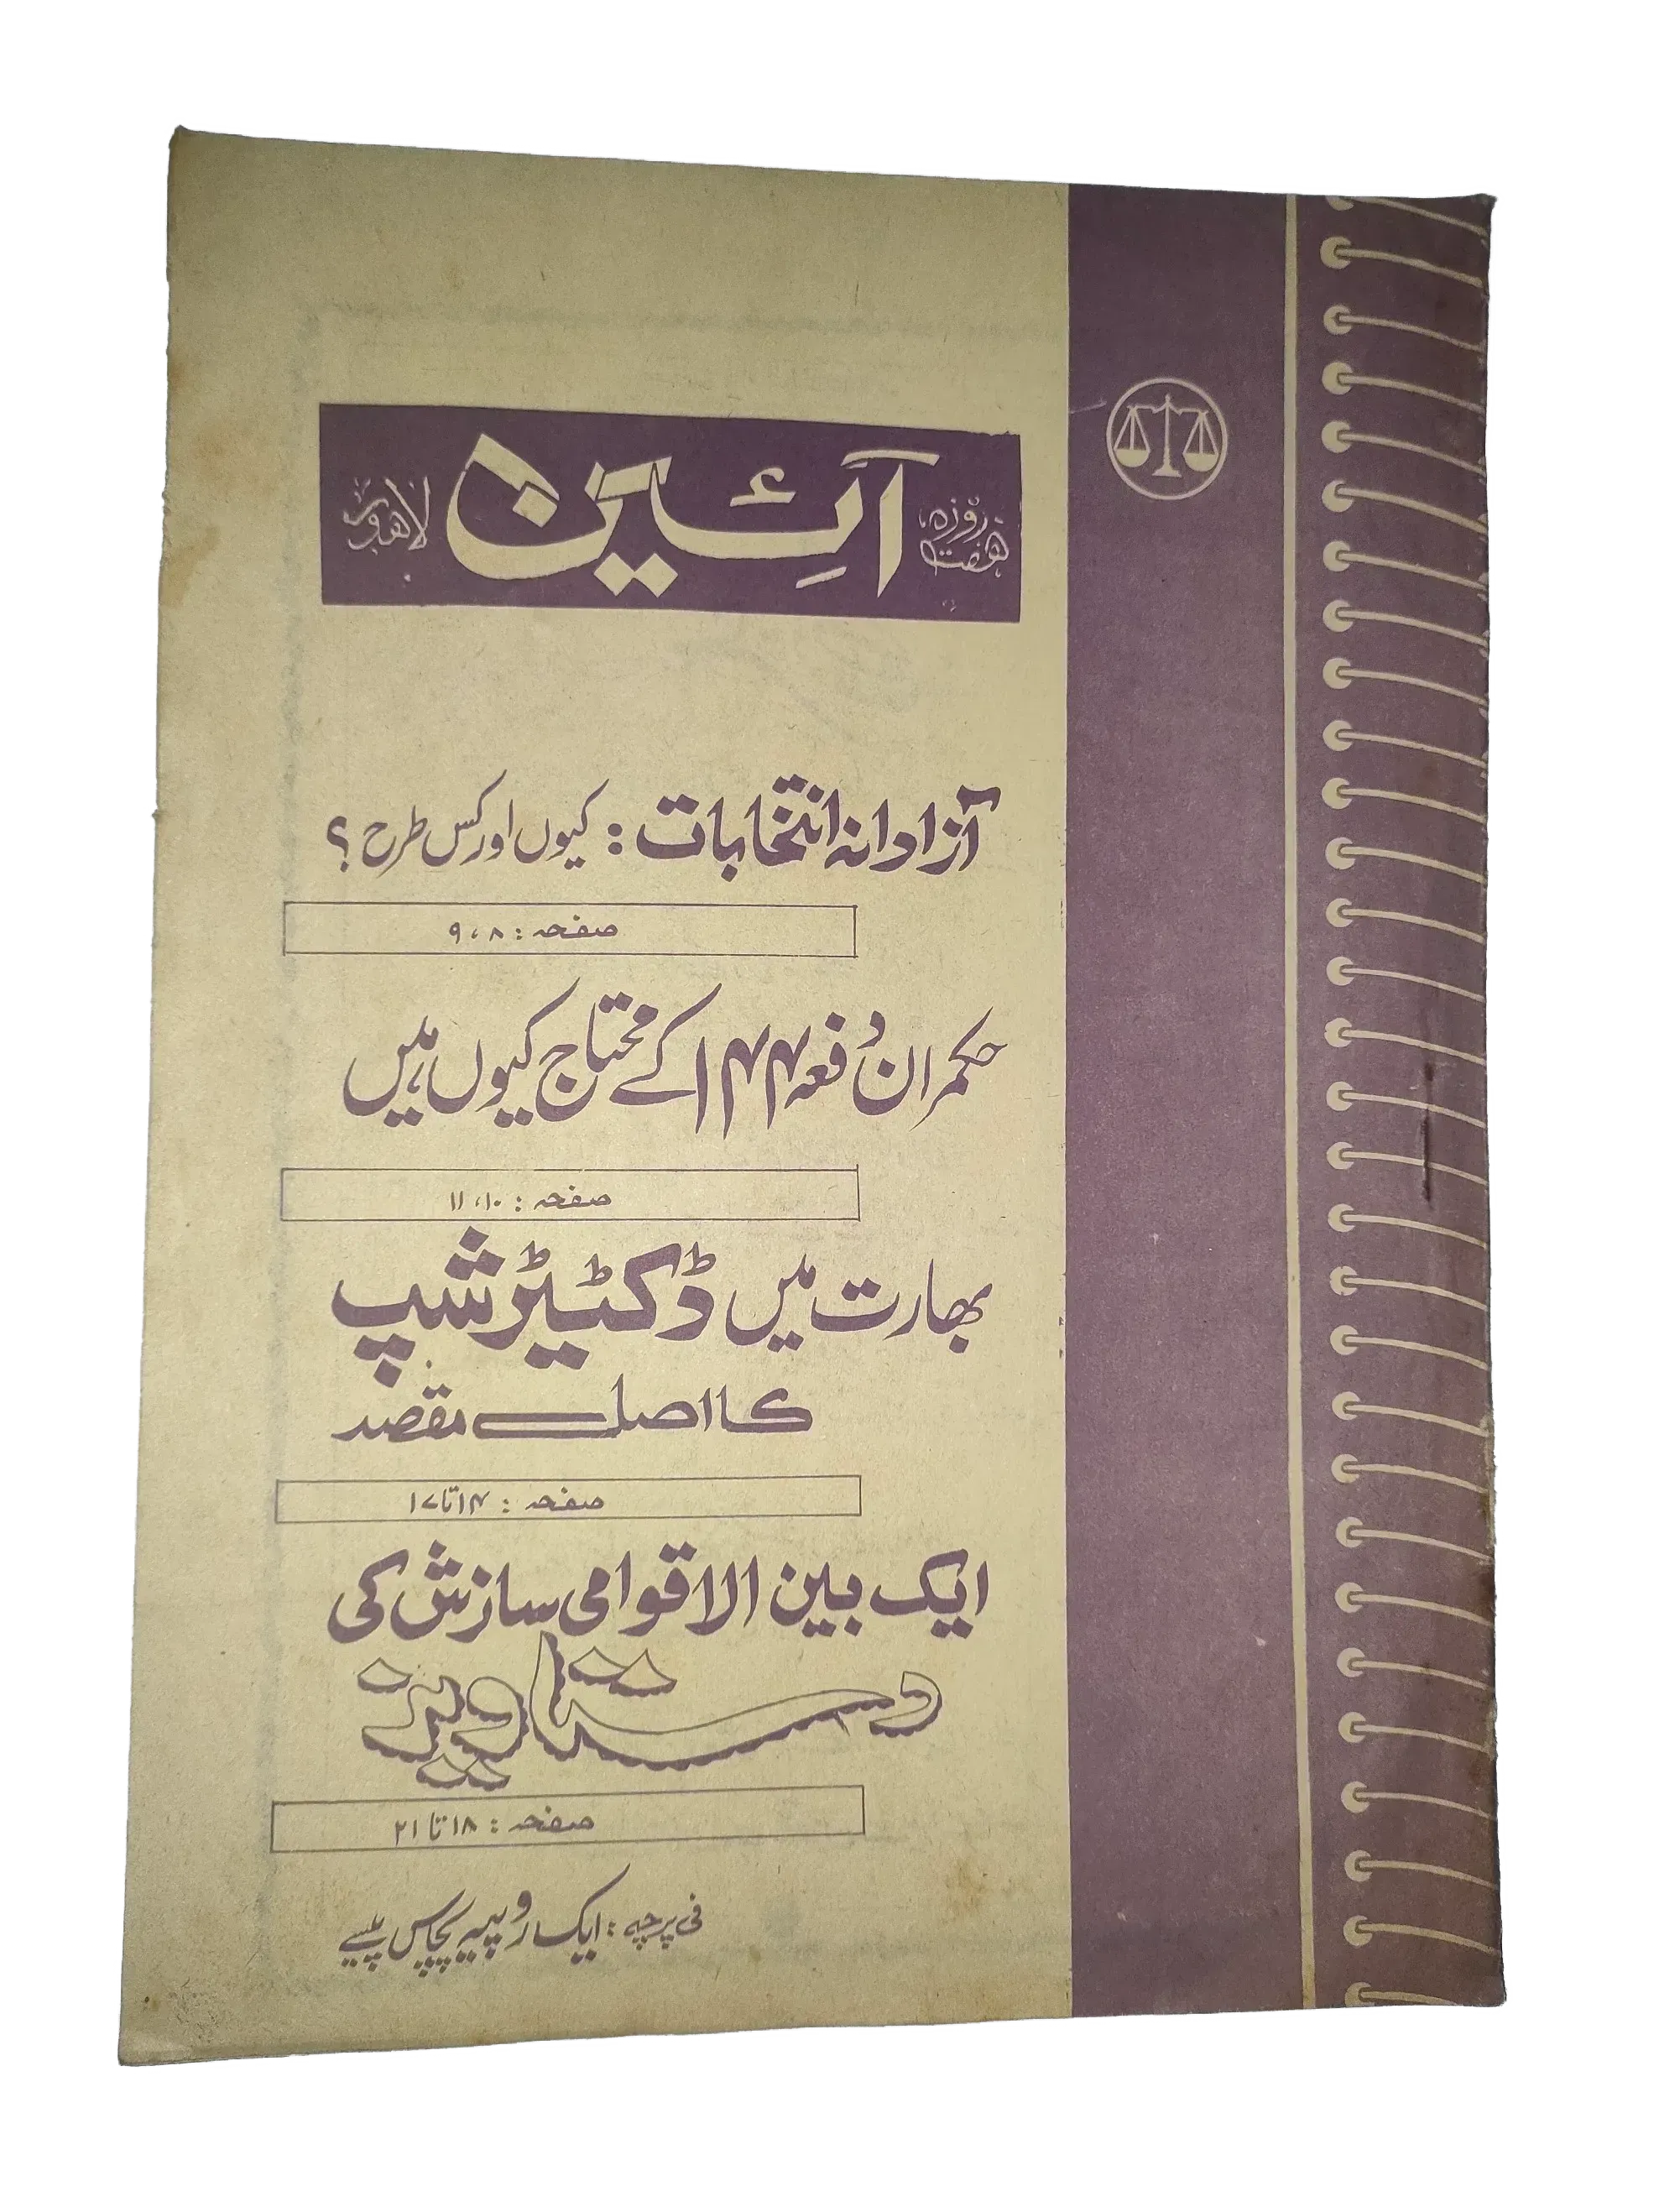 ہفت روزہ آئین لاہور
آزادانہ انتخابات : کیوں اور کس طرح ؟
صفحہ : ۸ ، ۹
حکمران دفعہ ۱۴۴ کے محتاج کیوں ہیں
صفحہ : ۱۰ ، ۱۱
بھارت میں ڈکٹیٹر شپ
کا اصل مقصد
صفحہ : ۱۴ تا ۱۷
ایک بین الاقوامی سازش کی
دستاویز
صفحہ : ۱۸ تا ۲۱
فی پرچہ : ایک روپیہ پچاس پیسے